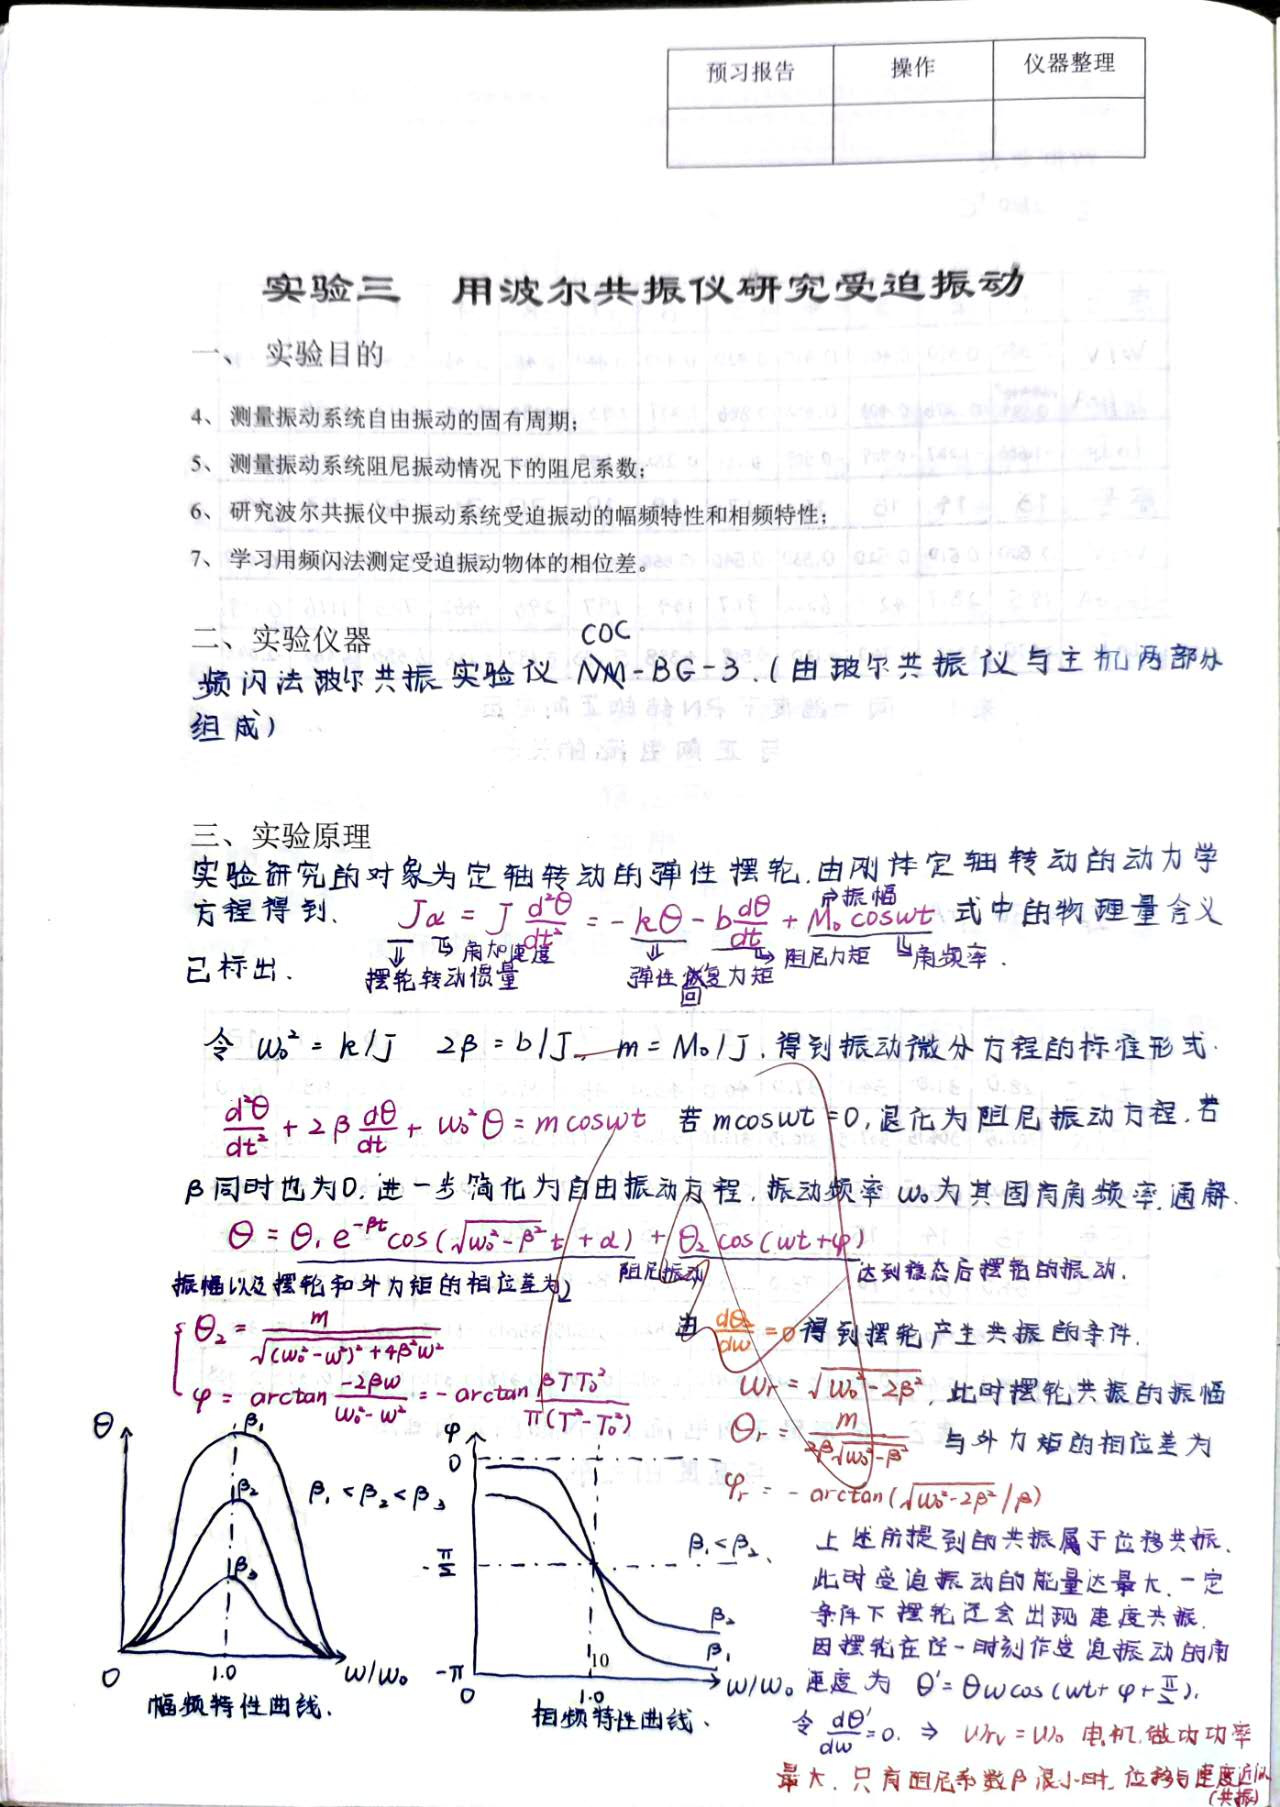 预习报告 操作 仪器整理
实验三 用波尔共振仪研究受迫振动
一、 实验目的
4、测量振动系统自由振动的固有周期;
5、测量振动系统阻尼振动情况下的阻尼系数;
6、研究波尔共振仪中振动系统受迫振动的幅频特性和相频特性;
7、学习用频闪法测定受迫振动物体的相位差。
二、实验仪器
COC
频闪法玻尔共振实验仪 -BG-3.(由玻尔共振仪与主机两部分
组成)
三、实验原理
实验研究的对象为定轴转动的弹性摆轮.由刚体定轴转动的动力学
方程得到. Jα = J d²θ/dt² = -kθ - b dθ/dt + M₀ cosωt 式中的物理量含义
振幅
已标出. 摆轮转动惯量 角加速度 弹性回复力矩 阻尼力矩 角频率.
令 ω₀² = k/J 2β = b/J. m = M₀/J. 得到振动微分方程的标准形式.
d²θ/dt² + 2β dθ/dt + ω₀²θ = m cosωt 若 m cosωt = 0, 退化为阻尼振动方程. 若
β同时也为0. 进一步简化为自由振动方程. 振动频率 ω₀为其固有角频率. 通解.
θ = θ₁ e^(-βt) cos(√(ω₀²-β²) t + α) + θ₂ cos(ωt+φ)
阻尼振动 达到稳态后摆轮的振动.
振幅以及摆轮和外力矩的相位差为
θ₂ = m/√((ω₀²-ω²)²+4β²ω²)
φ = arctan -2βω/(ω₀²-ω²) = -arctan βTT₀²/(π(T²-T₀²))
由 dθ₂/dω = 0 得到摆轮产生共振的条件.
ωr = √(ω₀²-2β²), 此时摆轮共振的振幅
θr = m/(2β√(ω₀²-β²)) 与外力矩的相位差为
φr = - arctan(√(ω₀²-2β²)/β)
θ β₁ β₂ β₃ β₁<β₂<β₃
0 1.0 ω/ω₀
幅频特性曲线.
φ 0 -π/2 -π β₁<β₂. β₂ β₁
0 1.0 ω/ω₀
相频特性曲线.
10
上述所提到的共振属于位移共振.
此时受迫振动的能量达最大. 一定
条件下摆轮还会出现速度共振.
因摆轮在任一时刻作受迫振动的角
速度为 θ' = θωcos(ωt+φ+π/2).
令 dθ'/dω = 0. ⇒ ωrv = ω₀ 电机做功功率
最大. 只有阻尼系数β很小时. 位移与速度近似
(共振)